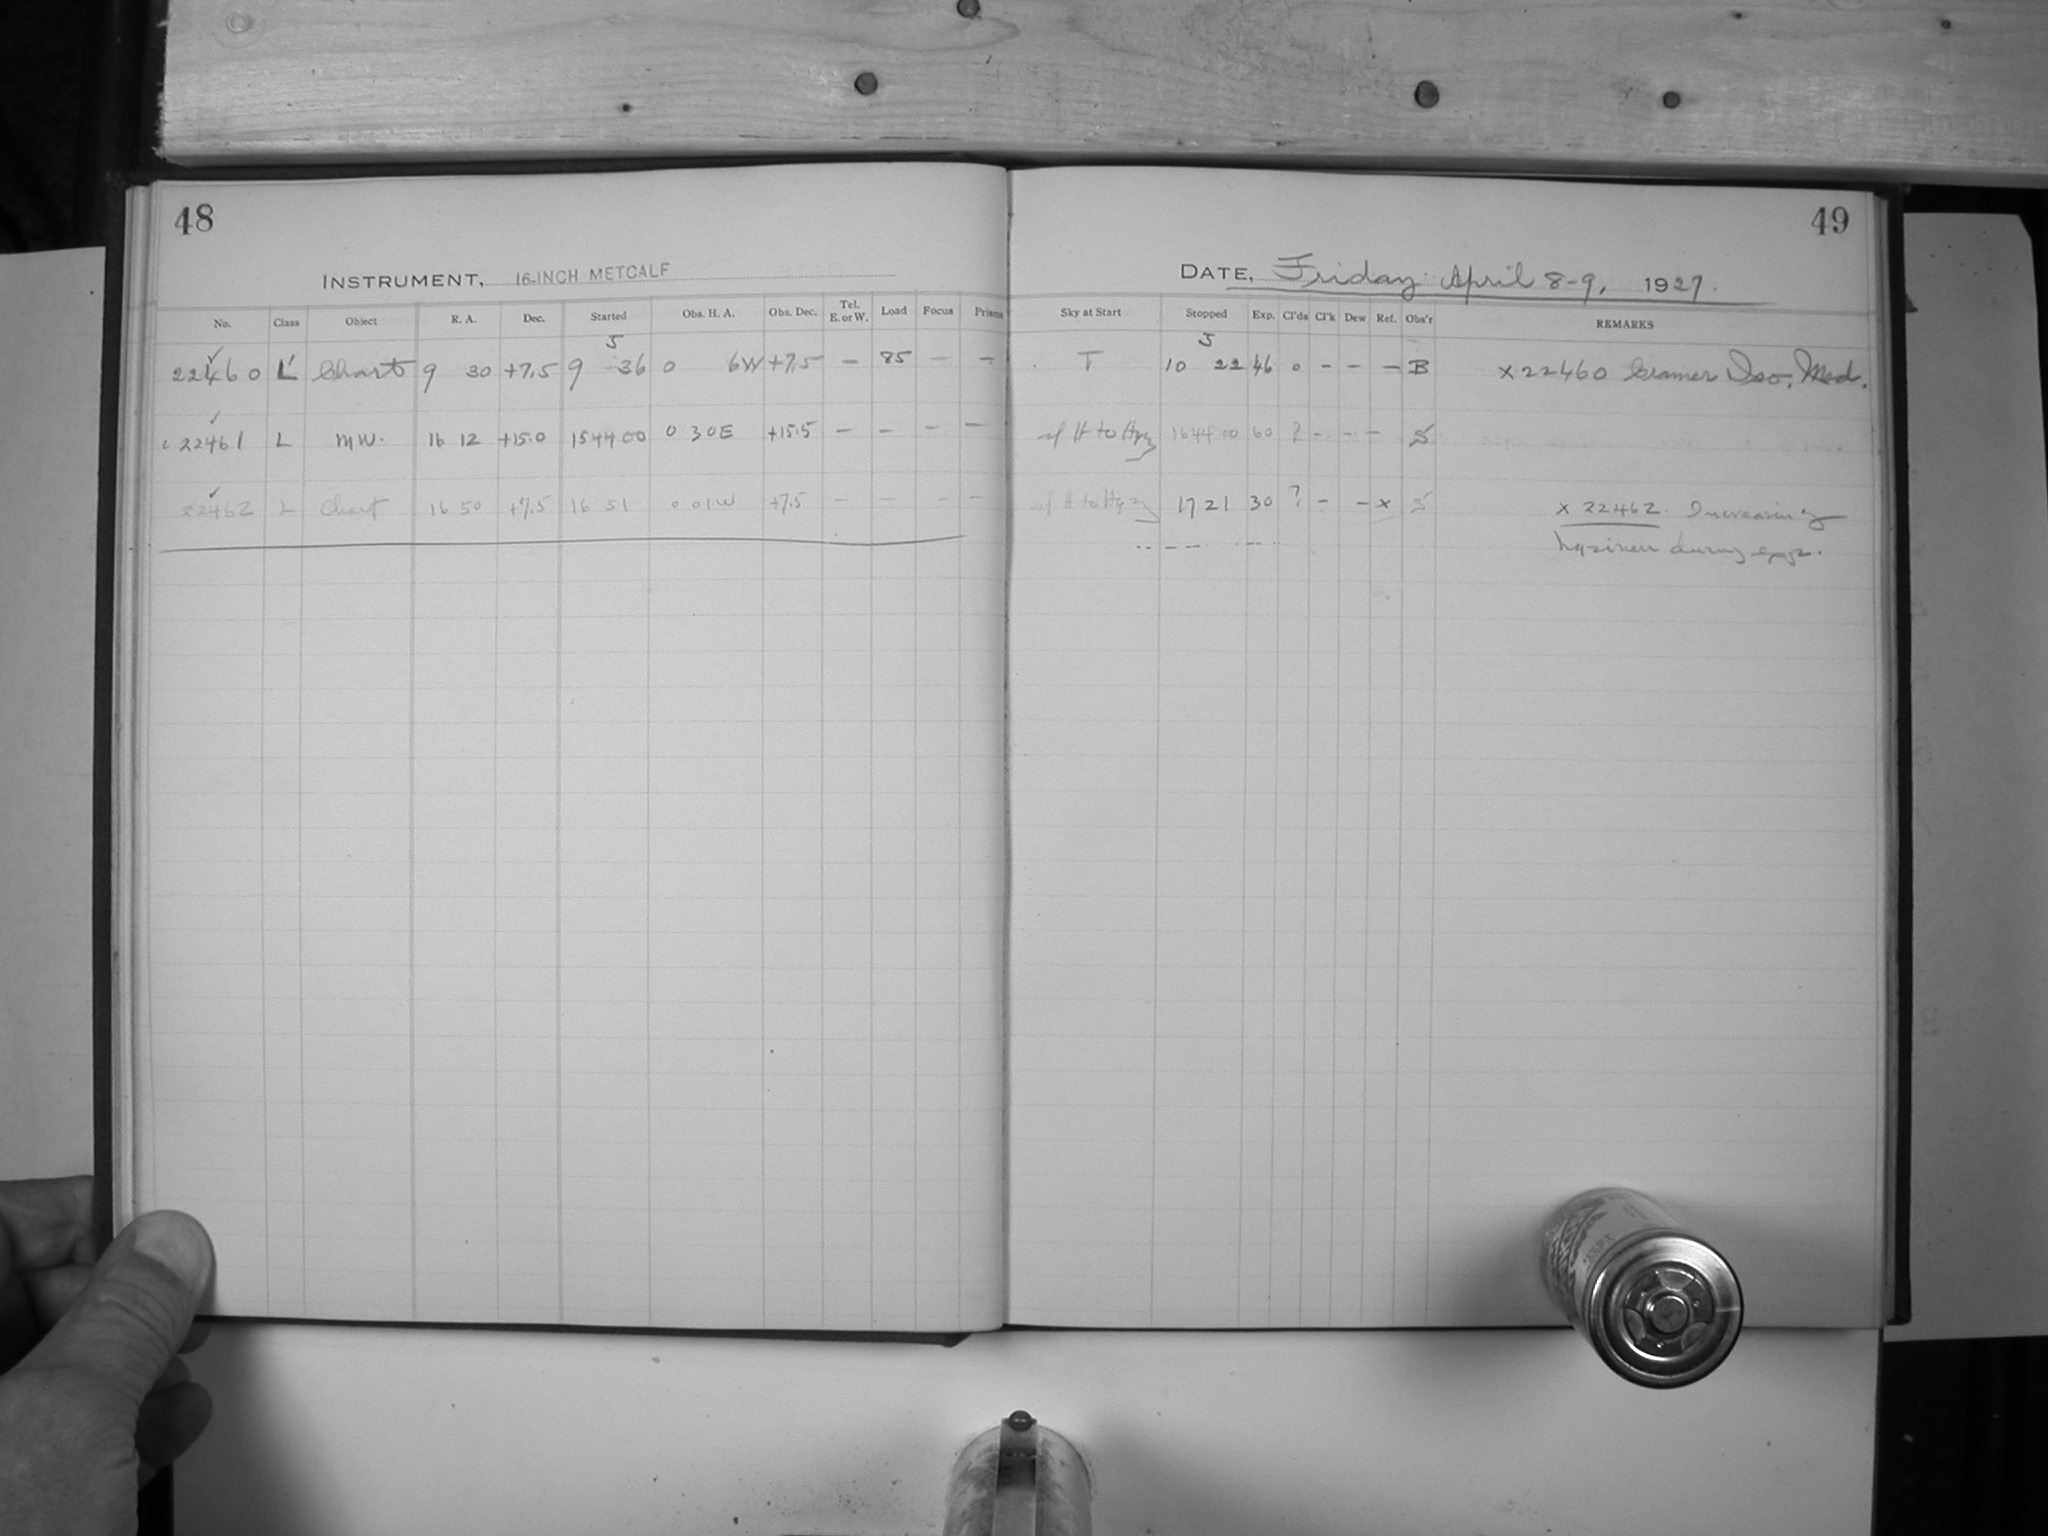 48
INSTRUMENT, 16-INCH METCALF
No. Class Object R. A. Dec. Started Obs. H. A. Obs. Dec. Tel. E. or W. Load Focus Prisms
5
22460 L' Chart 9 30 +7.5 9 36 0 6W +7.5 — 85 — —
22461 L MW. 16 12 +15.0 15 44 00 0 30E +15.5 — — — —
22462 L Chart 16 50 +7.5 16 51 0 01W +7.5 — — — —
49
DATE, Friday April 8-9, 1927.
Sky at Start Stopped Exp. Cl'ds Cl'k Dew Ref. Obs'r REMARKS
5
T 10 22 46 0 - - — B x22460 Cramer Iso. Med.
H to Hazy 16 44 00 60 ? - - - S
H to Hazy 17 21 30 ? - - x S x 22462 Increasing
haziness during expo.